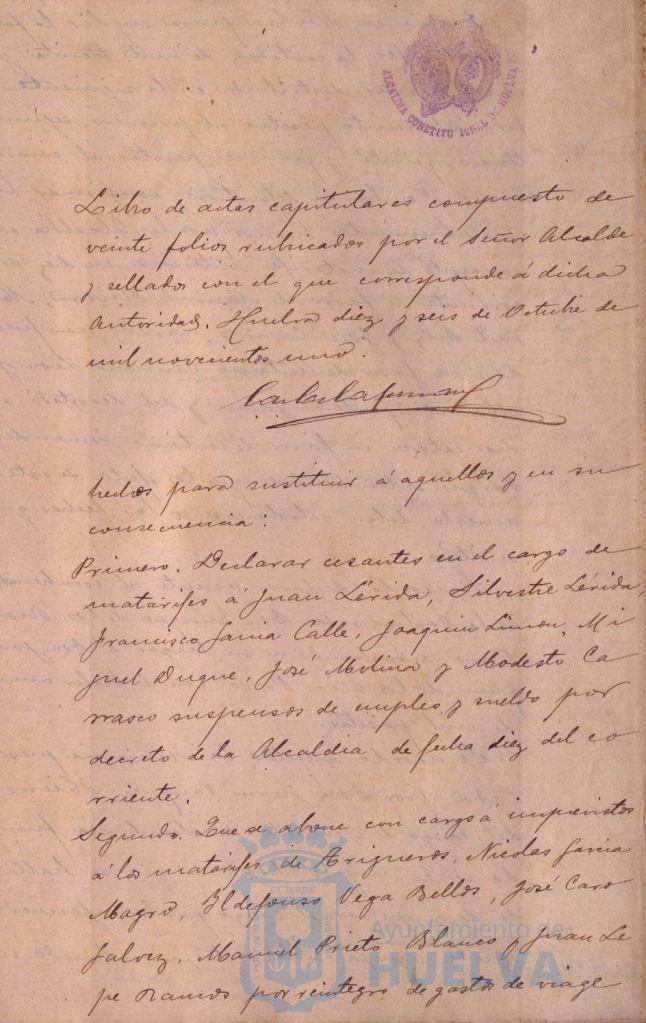 ALCALDIA CONSTITUCIONAL DE HUELVA
Libro de actas capitulares compuesto de
veinte folios rubricados por el Señor Alcalde
y sellados con el que corresponde á dicha
Autoridad. Huelva diez y seis de Octubre de
mil novecientos uno.
hechos para sustituir á aquellos y en su
consecuencia:
Primero. Declarar cesantes en el cargo de
matarifes á Juan Lérida, Silvestre Lérida,
Francisco Calle, Joaquin Limon, Mi
guel Duque, José Molina y Modesto Ca
rrasco suspensos de empleo y sueldo por
decreto de la Alcaldia de fecha diez del co
rriente.
Segundo. Que se abone con cargo á imprevistos
á los matarifes de Trigueros, Nicolas Garcia
Magro, Yldefonso Vega Bellos, José Caro
Galvez, Manuel Prieto Blanco y Juan Le
pe Ramos por reintegro de gastos de viage
Ayuntamiento de
HUELVA